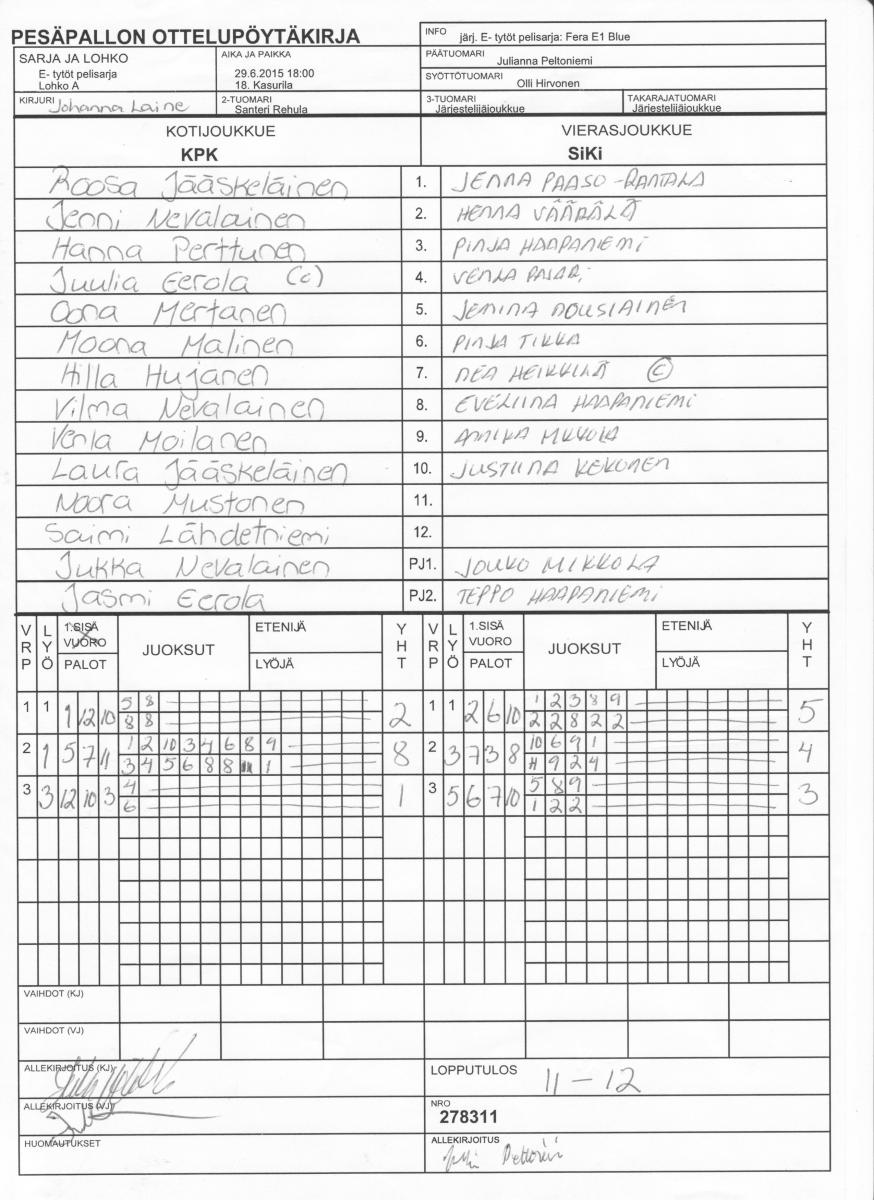 PESÄPALLON OTTELUPÖYTÄKIRJA
INFO järj. E- tytöt pelisarja: Fera E1 Blue
SARJA JA LOHKO
E- tytöt pelisarja
Lohko A
AIKA JA PAIKKA
29.6.2015 18:00
18. Kasurila
PÄÄTUOMARI Julianna Peltoniemi
SYÖTTÖTUOMARI Olli Hirvonen
KIRJURI Johanna Laine
2-TUOMARI Santeri Rehula
3-TUOMARI Järjestelijäjoukkue
TAKARAJATUOMARI Järjestelijäjoukkue
KOTIJOUKKUE VIERASJOUKKUE
KPK SiKi
Roosa Jääskeläinen 1. JENNA PAASO-RANTALA
Jenni Nevalainen 2. HENNA VÄÄRÄLÄ
Hanna Perttunen 3. PINJA HAAPANIEMI
Juulia Eerola (c) 4. VENLA PAJARI
Oona Mertanen 5. JEMINA NOUSIAINEN
Moona Malinen 6. PINJA TIKKA
Hilla Hujanen 7. NEA HEIKKILÄ (C)
Vilma Nevalainen 8. EVELIINA HAAPANIEMI
Venla Moilanen 9. ANNIKA MIKKOLA
Laura Jääskeläinen 10. JUSTIINA KEKONEN
Noora Mustonen 11.
Saimi Lähdetniemi 12.
Jukka Nevalainen PJ1. JOUKO MIKKOLA
Jasmi Eerola PJ2. TEPPO HAAPANIEMI
VRP LYÖ 1.SISÄ VUORO PALOT JUOKSUT ETENIJÄ LYÖJÄ YHT VRP LYÖ 1.SISÄ VUORO PALOT JUOKSUT ETENIJÄ LYÖJÄ YHT
1 1 1 12 10 5 8 2 1 1 2 6 10 1 2 3 8 9 5
8 8 2 2 8 2 2
2 1 5 7 11 1 2 10 3 4 6 8 9 8 2 3 7 3 8 10 6 9 1 4
3 4 5 6 8 8 1 9 2 4
3 3 12 10 3 4 1 3 5 6 7 10 5 8 9 3
6 1 2 2
VAIHDOT (KJ)
VAIHDOT (VJ)
ALLEKIRJOITUS (KJ)
LOPPUTULOS 11 - 12
ALLEKIRJOITUS (VJ)
NRO
278311
HUOMAUTUKSET
ALLEKIRJOITUS